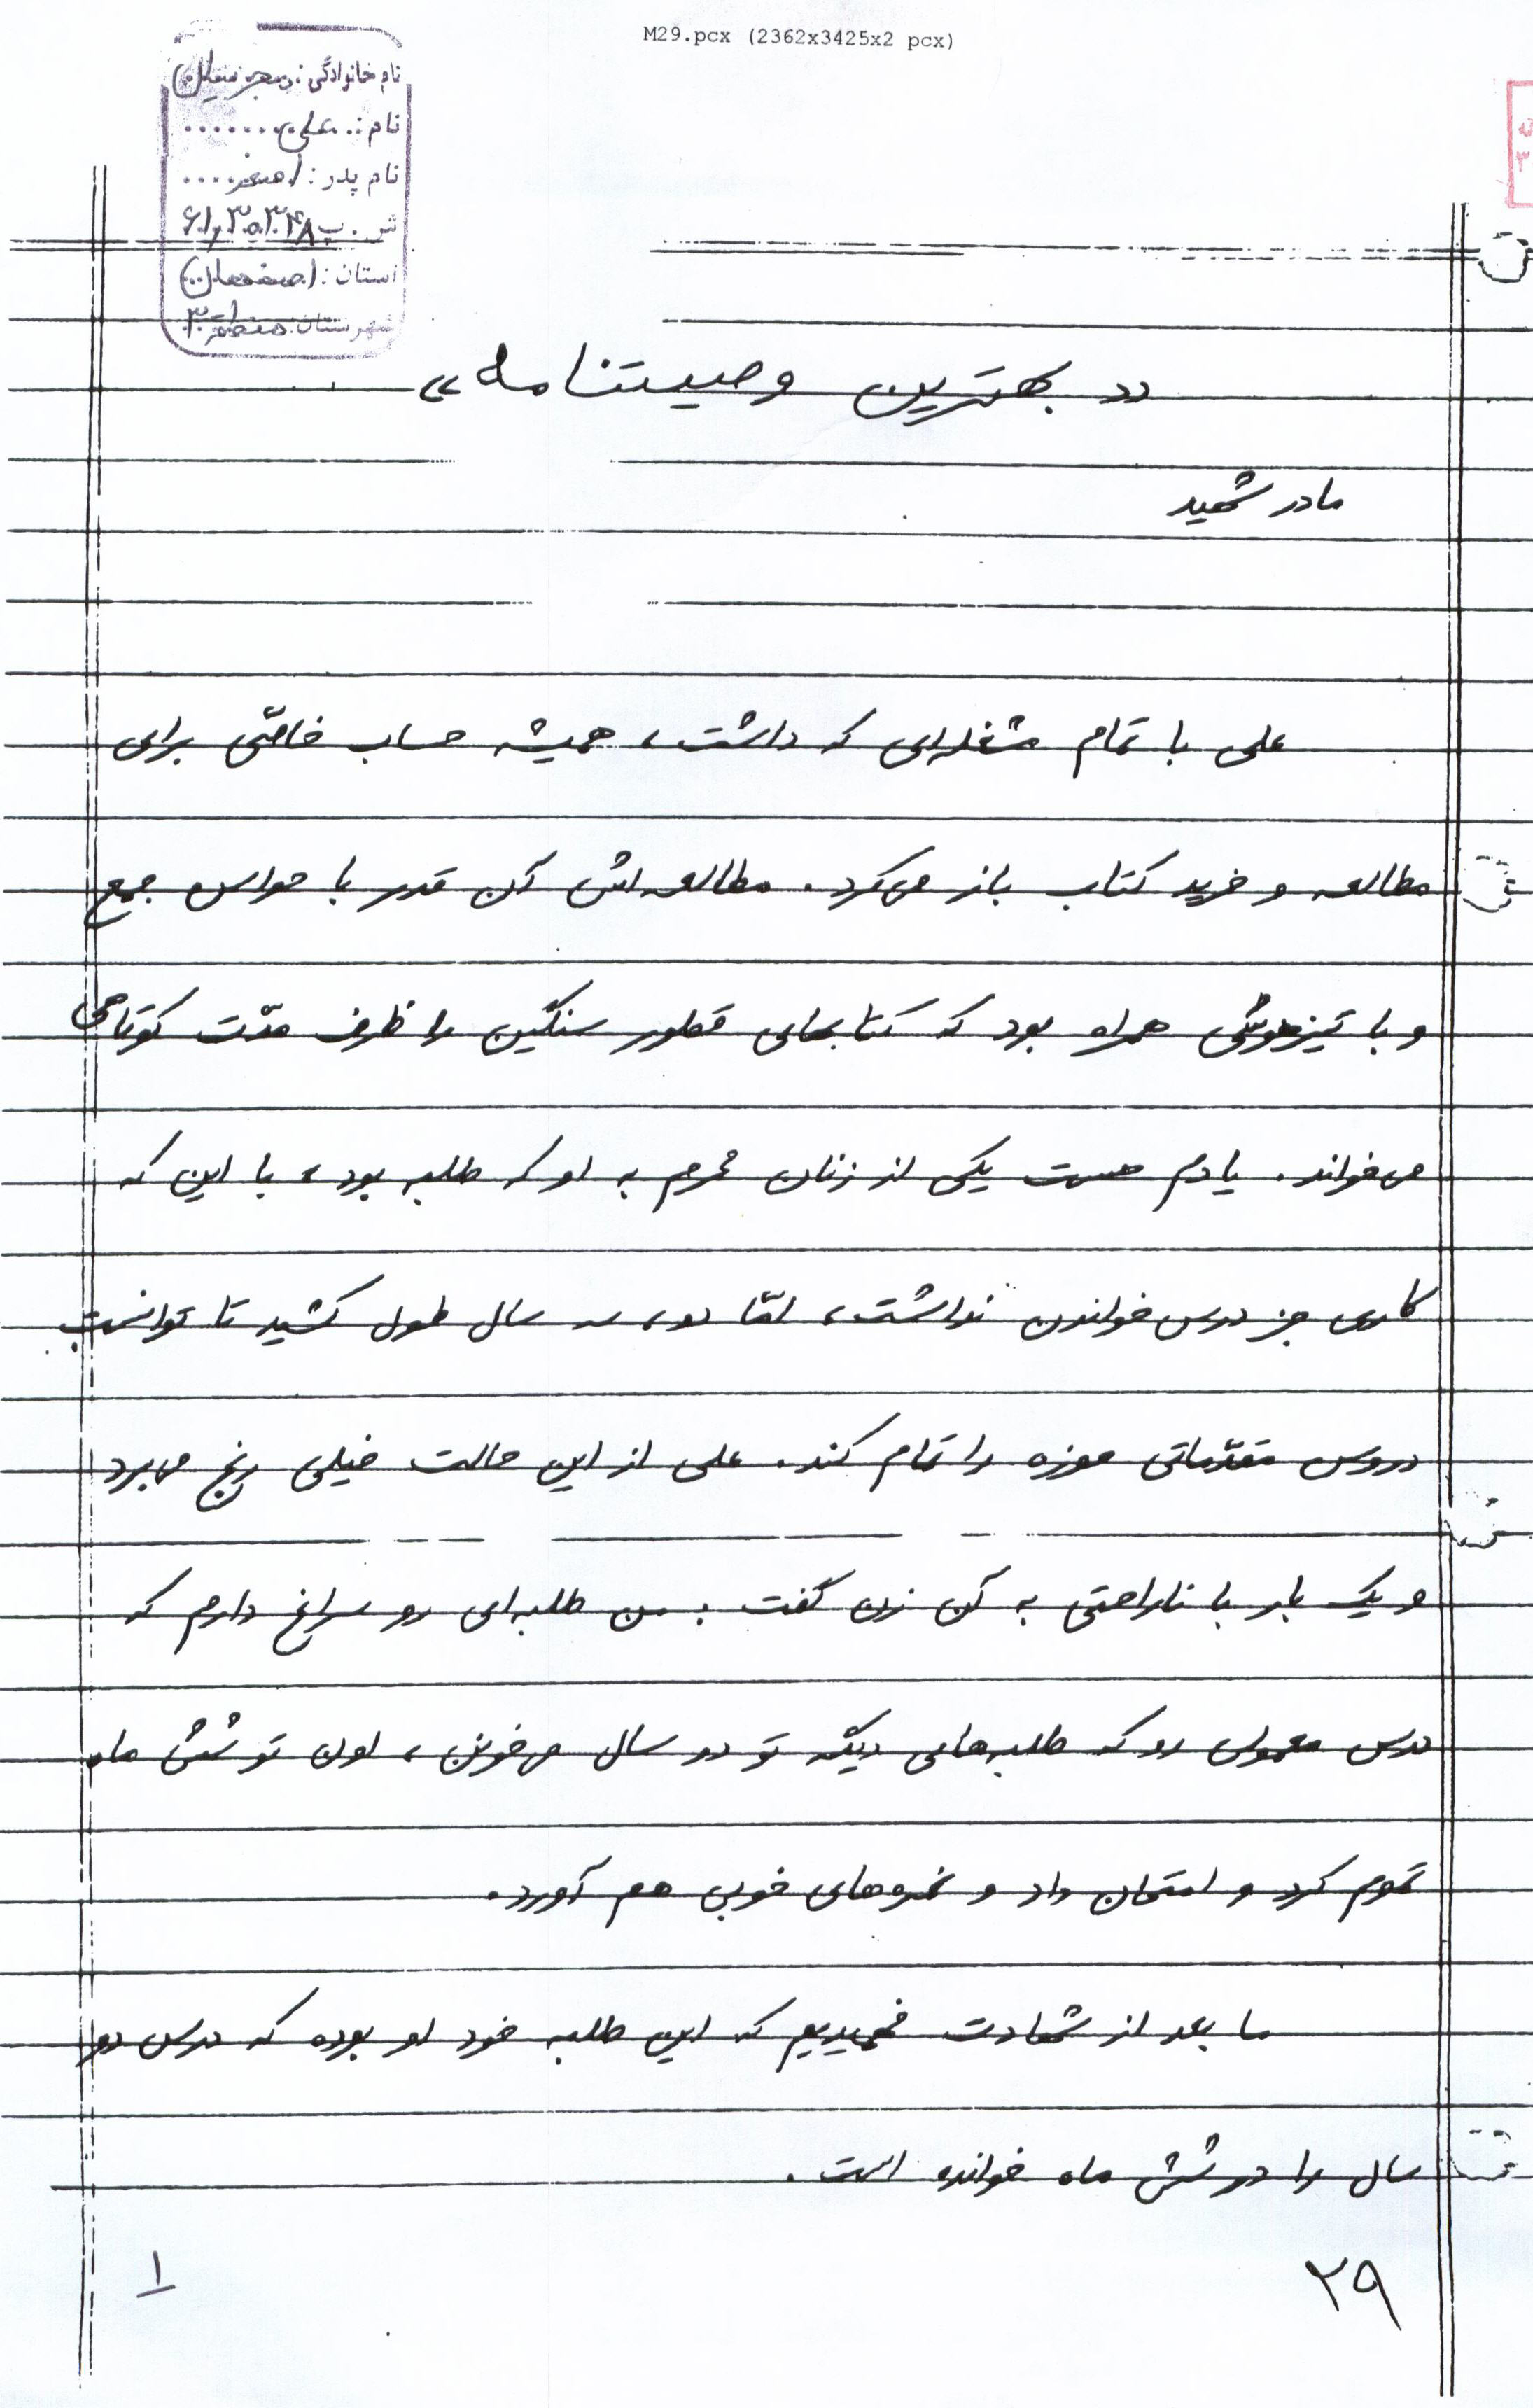 M29.pcx (2362x3425x2 pcx)
نام خانوادگی:
نام: علی
نام پدر: اصغر
ش. پ
استان: اصفهان
شهرستان: منطقه ۳
«بهترین وصیتنامه»
مادر شهید
علی با تمام مشغله‌ای که داشت، همیشه حساب خاصّی برای
مطالعه و خرید کتاب باز می‌کرد. مطالعه‌اش آن قدر با حواس جمع
و با تیزهوشی همراه بود که کتابهای قطور سنگین را ظرف مدّت کوتاهی
می‌خواند. یادم هست یکی از زنان محرم به او که طلبه بود، با این که
کاری جز درس خواندن نداشت، امّا دو، سه سال طول کشید تا توانست
دروس مقدّماتی حوزه را تمام کند. علی از این حالت خیلی رنج می‌برد
و یک بار با ناراحتی به آن زن گفت: من طلبه‌ای رو سراغ دارم که
درس معمولی رو که طلبه‌های دیگه تو دو سال می‌خونن، اون تو شش ماه
تموم کرد و امتحان داد و نمره‌های خوبی هم آورد.
ما بعد از شهادت فهمیدیم که این طلبه خود او بوده که درس دو
سال را در شش ماه خوانده است.
۲۹
۱